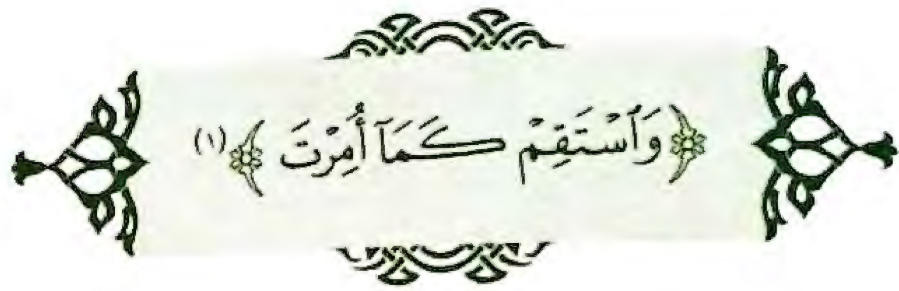 ﴿وَٱسْتَقِمْ كَمَآ أُمِرْتَ﴾ (١)